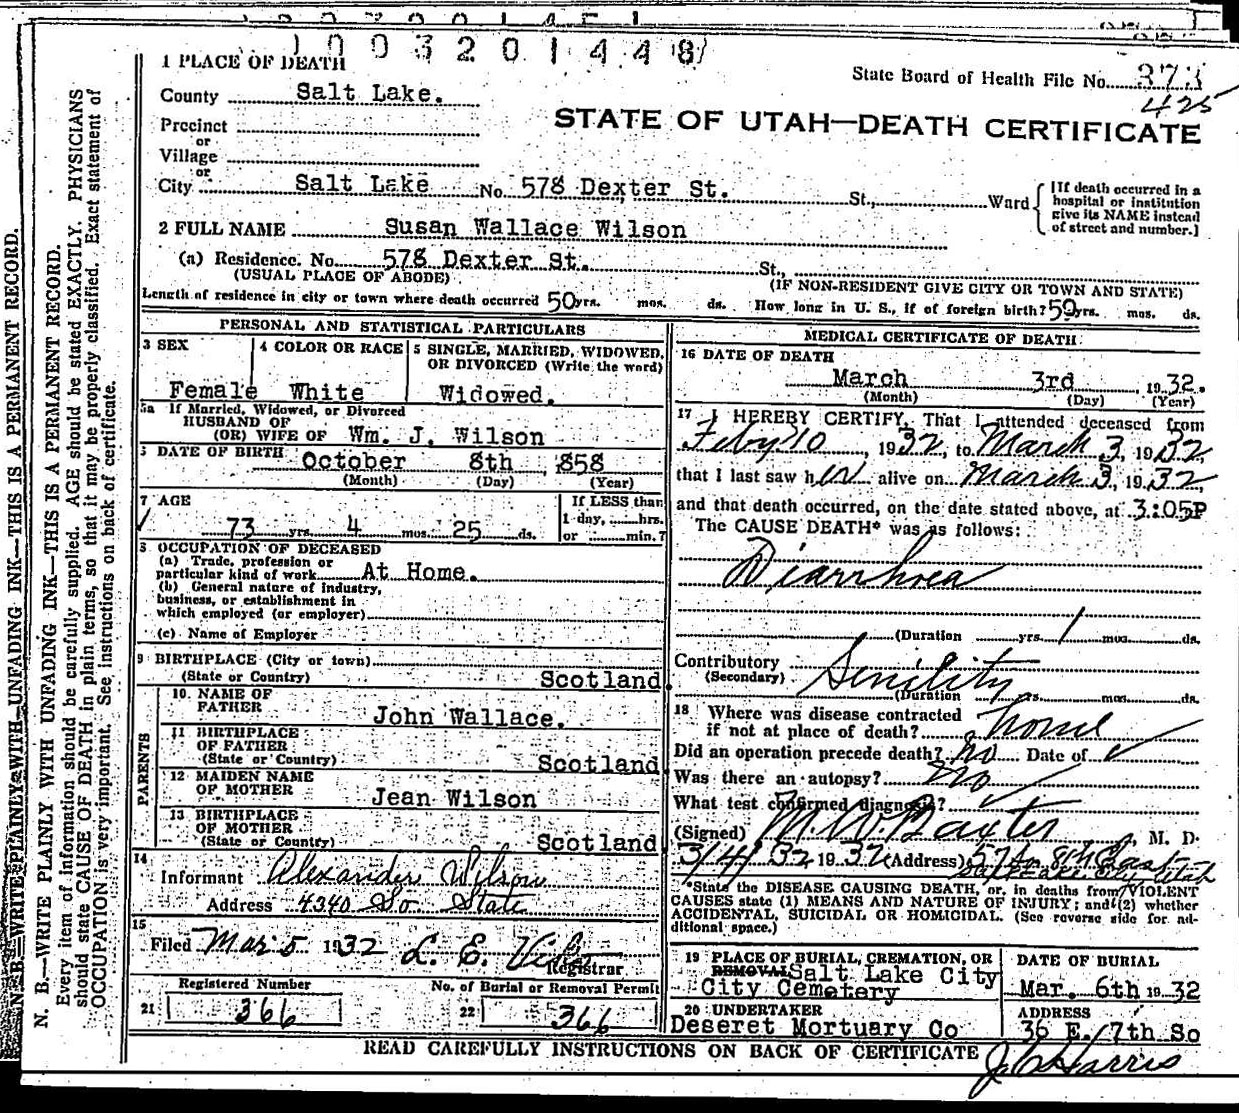 1003201448
1 PLACE OF DEATH
State Board of Health File No. 373
425
County Salt Lake.
STATE OF UTAH—DEATH CERTIFICATE
Precinct
or
Village
or
City Salt Lake No. 578 Dexter St. St., Ward
[If death occurred in a hospital or institution give its NAME instead of street and number.]
2 FULL NAME Susan Wallace Wilson
(a) Residence. No. 578 Dexter St. St.,
(USUAL PLACE OF ABODE) (IF NON-RESIDENT GIVE CITY OR TOWN AND STATE)
Length of residence in city or town where death occurred 50 yrs. mos. ds. How long in U. S., if of foreign birth? 50 yrs. mos. ds.
PERSONAL AND STATISTICAL PARTICULARS
3 SEX
4 COLOR OR RACE
5 SINGLE, MARRIED, WIDOWED, OR DIVORCED (Write the word)
Female White Widowed.
5a If Married, Widowed, or Divorced
HUSBAND OF
(OR) WIFE OF Wm. J. Wilson
6 DATE OF BIRTH October 8th 858
(Month) (Day) (Year)
7 AGE
If LESS than
1 day, hrs.
or min.?
73 yrs. 4 mos. 25 ds.
8 OCCUPATION OF DECEASED
(a) Trade, profession or
particular kind of work At Home.
(b) General nature of industry,
business, or establishment in
which employed (or employer)
(c) Name of Employer
9 BIRTHPLACE (City or town)
(State or Country) Scotland.
PARENTS
10 NAME OF
FATHER John Wallace.
11 BIRTHPLACE
OF FATHER
(State or Country) Scotland
12 MAIDEN NAME
OF MOTHER Jean Wilson
13 BIRTHPLACE
OF MOTHER
(State or Country) Scotland
14
Informant Alexander Wilson
Address 4340 So State
15
Filed Mar. 5 1932 L. E.
Registrar
Registered Number
21 366
No. of Burial or Removal Permit
22 366
MEDICAL CERTIFICATE OF DEATH
16 DATE OF DEATH
March 3rd 1932.
(Month) (Day) (Year)
17 I HEREBY CERTIFY, That I attended deceased from
Feby 10, 1932, to March 3, 1932,
that I last saw her alive on March 3, 1932
and that death occurred, on the date stated above, at 3:05P
The CAUSE DEATH* was as follows:
Diarrhoea
(Duration yrs. 1 mos. ds.
Contributory Senility
(Secondary)
(Duration yrs. mos. ds.
18 Where was disease contracted
if not at place of death? home
Did an operation precede death? no Date of
Was there an autopsy? no
What test confirmed diagnosis?
(Signed) M. W. Baxter, M. D.
3/4/32 1932 (Address) 57 So 8th East
Salt Lake City Utah
*State the DISEASE CAUSING DEATH, or, in deaths from VIOLENT
CAUSES state (1) MEANS AND NATURE OF INJURY; and (2) whether
ACCIDENTAL, SUICIDAL OR HOMICIDAL. (See reverse side for additional space.)
19 PLACE OF BURIAL, CREMATION, OR
REMOVAL Salt Lake City
City Cemetery
DATE OF BURIAL
Mar. 6th 1932
20 UNDERTAKER
Deseret Mortuary Co
ADDRESS
36 E. 7th So
READ CAREFULLY INSTRUCTIONS ON BACK OF CERTIFICATE
J C Harris
N. B.—WRITE PLAINLY WITH UNFADING INK—THIS IS A PERMANENT RECORD.
N. B.—WRITE PLAINLY WITH UNFADING INK—THIS IS A PERMANENT RECORD.
Every item of information should be carefully supplied. AGE should be stated EXACTLY. PHYSICIANS
should state CAUSE OF DEATH in plain terms, so that it may be properly classified. Exact statement of
OCCUPATION is very important. See instructions on back of certificate.